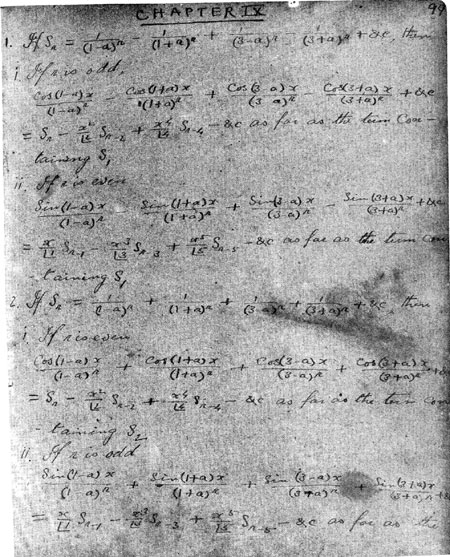 CHAPTER IX 99
1. If Sₙ = 1/(1-a)ⁿ - 1/(1+a)ⁿ + 1/(3-a)ⁿ - 1/(3+a)ⁿ + &c, then
i. If n is odd,
Cos(1-a)x/(1-a)ⁿ - Cos(1+a)x/(1+a)ⁿ + Cos(3-a)x/(3-a)ⁿ - Cos(3+a)x/(3+a)ⁿ + &c
= Sₙ - x²/⌊2 Sₙ₋₂ + x⁴/⌊4 Sₙ₋₄ - &c as far as the term con-
taining S₁
ii. If n is even
Sin(1-a)x/(1-a)ⁿ - Sin(1+a)x/(1+a)ⁿ + Sin(3-a)x/(3-a)ⁿ - Sin(3+a)x/(3+a)ⁿ + &c
= x/⌊1 Sₙ₋₁ - x³/⌊3 Sₙ₋₃ + x⁵/⌊5 Sₙ₋₅ - &c as far as the term con
-taining S₁
2. If Sₙ = 1/(1-a)ⁿ + 1/(1+a)ⁿ + 1/(3-a)ⁿ + 1/(3+a)ⁿ + &c, then
i. If n is even
Cos(1-a)x/(1-a)ⁿ + Cos(1+a)x/(1+a)ⁿ + Cos(3-a)x/(3-a)ⁿ + Cos(3+a)x/(3+a)ⁿ + &c
= Sₙ - x²/⌊2 Sₙ₋₂ + x⁴/⌊4 Sₙ₋₄ - &c as far as the term con
-taining S₂
ii. If n is odd
Sin(1-a)x/(1-a)ⁿ + Sin(1+a)x/(1+a)ⁿ + Sin(3-a)x/(3-a)ⁿ + Sin(3+a)x/(3+a)ⁿ + &c
= x/⌊1 Sₙ₋₁ - x³/⌊3 Sₙ₋₃ + x⁵/⌊5 Sₙ₋₅ - &c as far as the